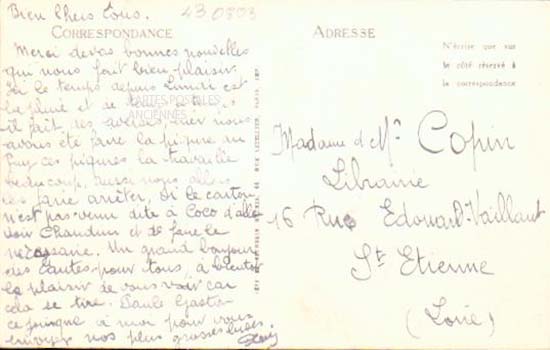 Bien Chers Tous.
43.0803
CORRESPONDANCE
Merci de vos bonnes nouvelles
qui nous font bien plaisir.
le temps depuis Lundi est
la pluie et se
il fait des averses, hier nous
avons été faire la piqure au
ces piqures la travaille
beaucoup, aussi nous allons
les faire arrêter, si le carton
n'est pas venu dite à Coco d'aller
voir Chaudun et de faire le
nécessaire. Un grand bonjour
des tantes pour tous, à bientôt
le plaisir de vous voir car
cela se tire. Paule Gaston
se joingne à moi pour vous
envoyer nos plus grosses bises.
CARTES POSTALES
ANCIENNES
ADRESSE
N'écrire que sur
le côté réservé à
la correspondance
Madame et Mr Copin
Librairie
16 Rue Edouard-Vaillant
St Etienne
(Loire)